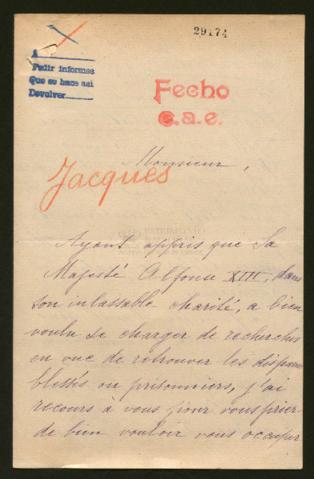 29174
A
Pedir informes
Que se hace asi
Devolver
Fecho
c.a.e.
Monsieur,
Jacques
Ayant appris que Sa
Majesté Alfonse XIII, dans
son inlassable charité, a bien
voulu se charger de recherches
en vue de retrouver les disparus
blessés ou prisonniers, j'ai
recours à vous pour vous prier
de bien vouloir vous occuper